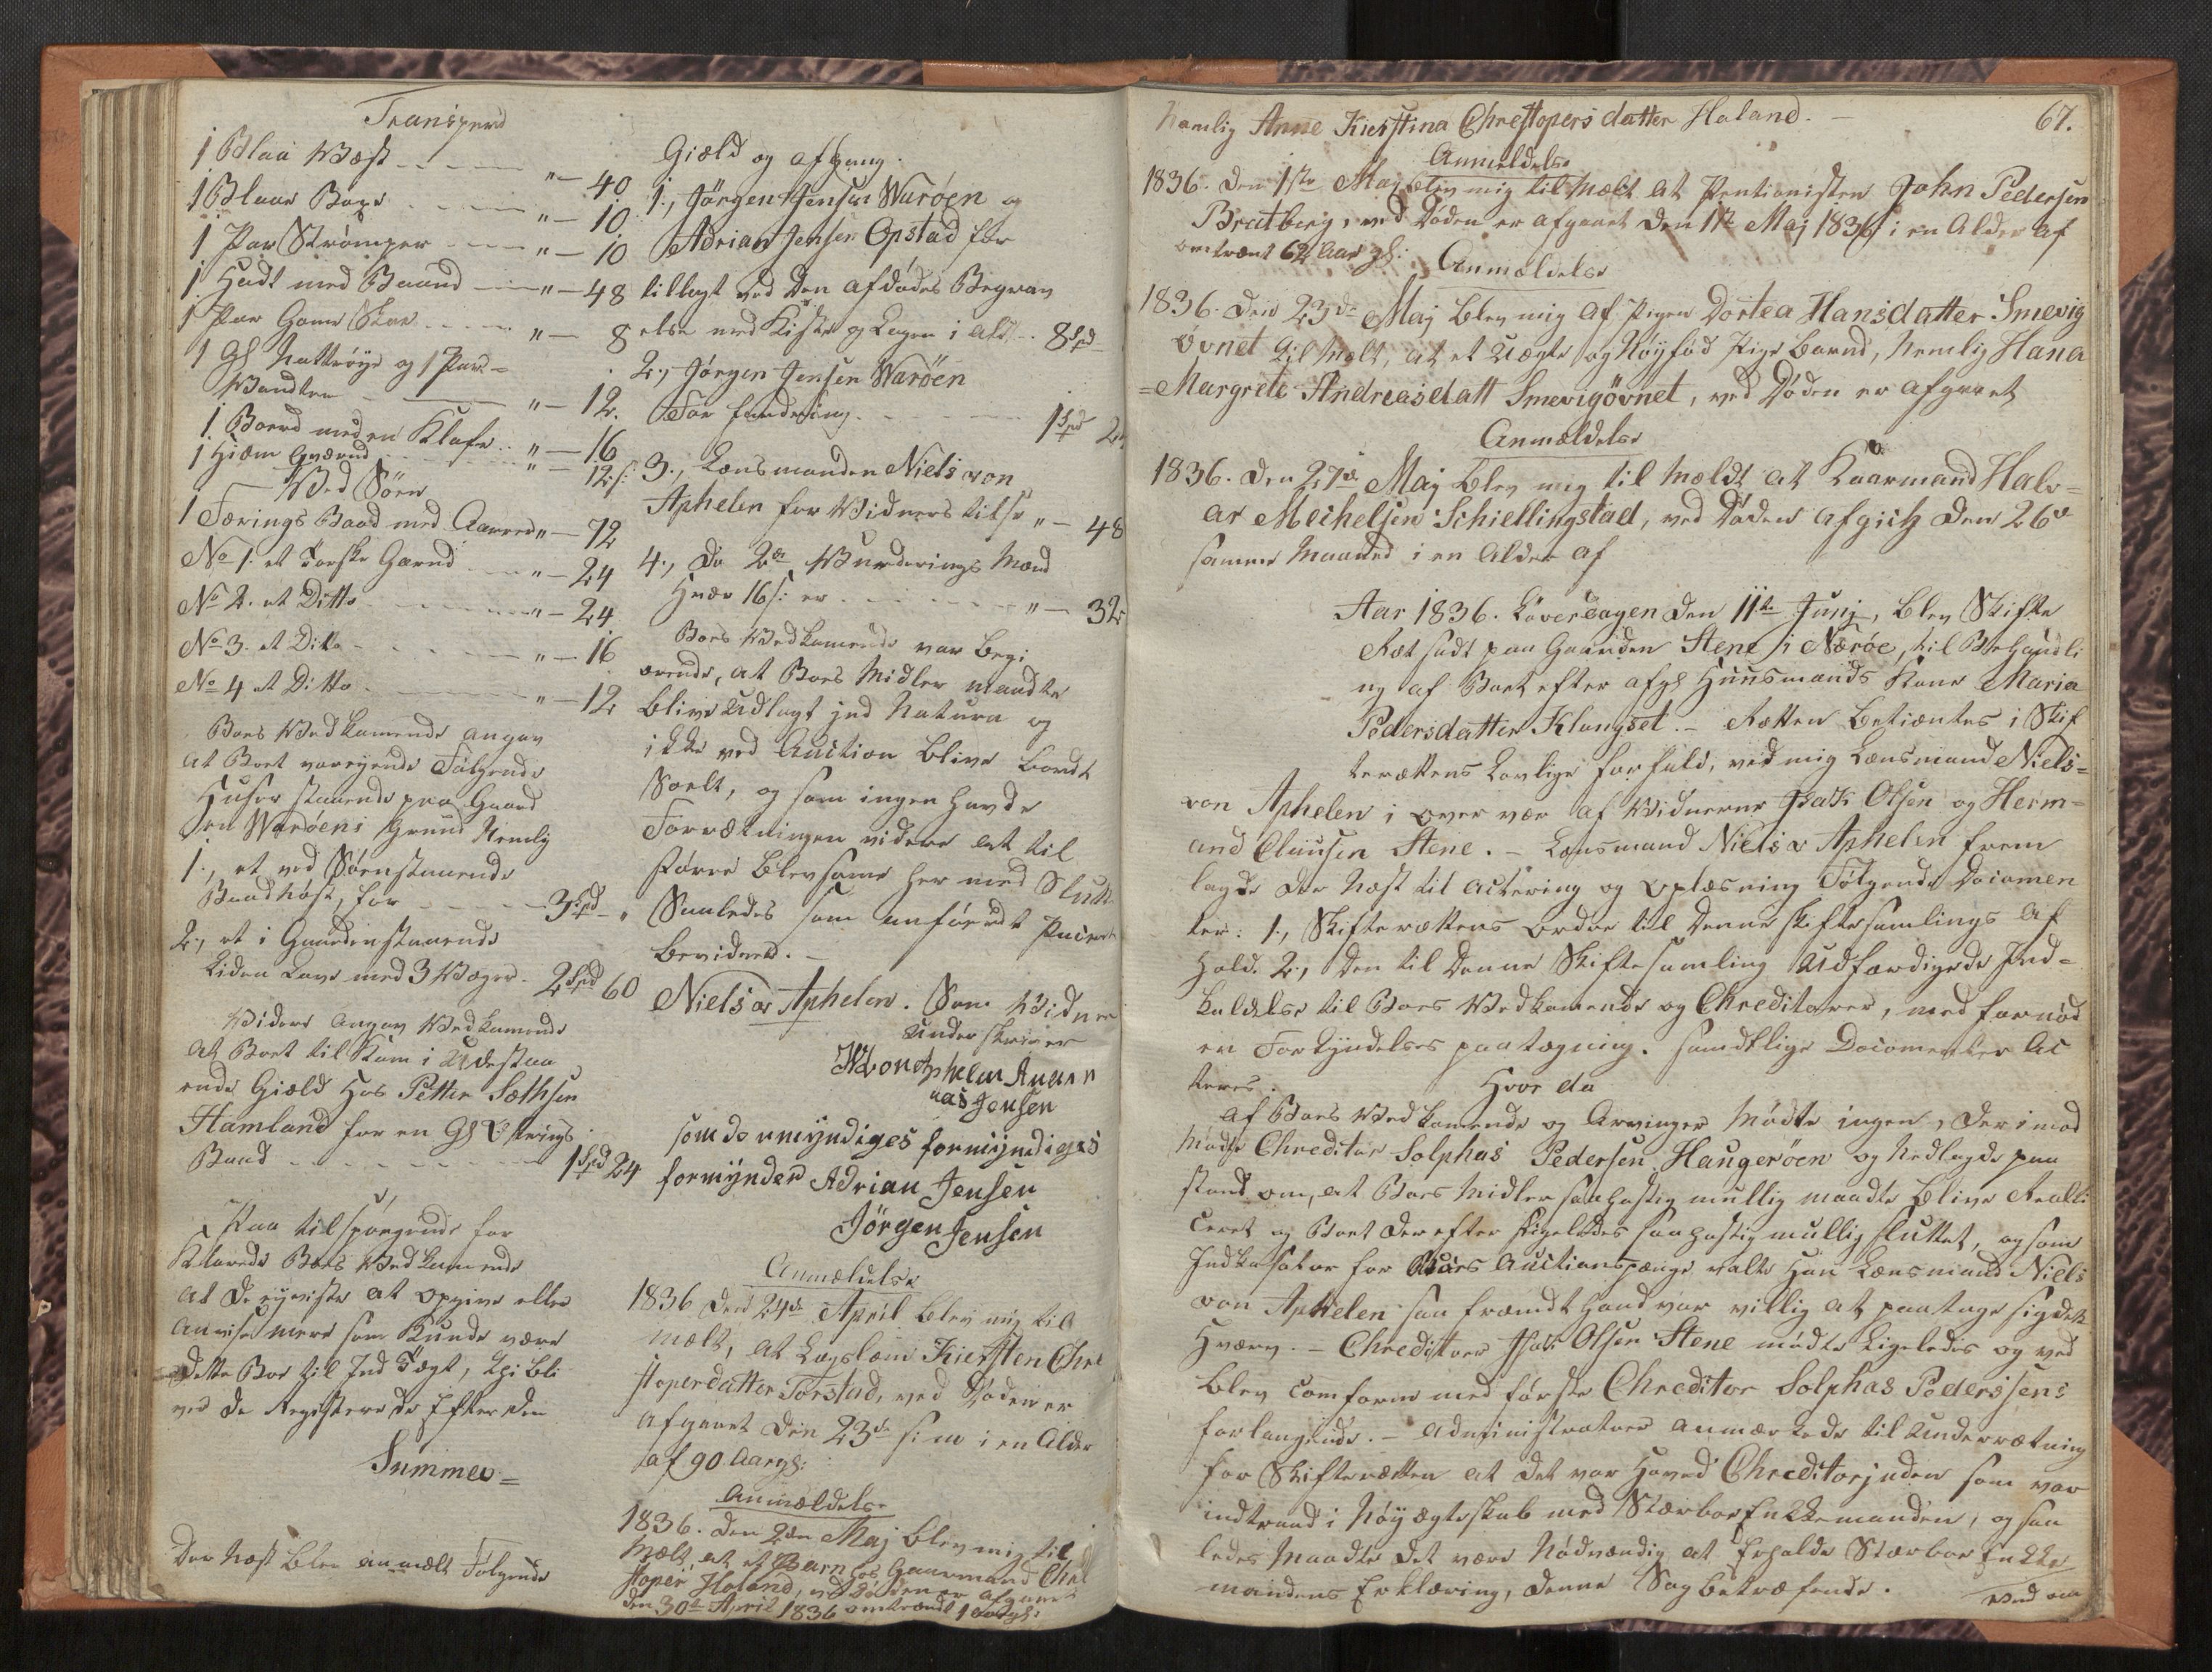 Transpord
1 Blaa Wæst - - - - " - 40
1 Blaae Boxe - - - - " - 10
1 Par Strømper - - - " - 10
1 Hadt med Baand - - - " - 48
1 Par Gamle Skoe - - - " - 8
1 Gl Nattrøye og 1 Par =
Wandter - - - " - 12.
1 Boerd med en Klafe - - " - 16
1 Hiem Qværnd - - - " - 12 s:
Ved Søen
1 Færings Baad med Aarer " - 72
No 1. et Torske Garnd - - " - 24
No 2. et Ditto - - - - " - 24
No 3. et Ditto - - - - " - 16
No 4 et Ditto - - - - " - 12
Boes Vedkomende angav
at Boet var eyende Følgende
Huser staaende paa Gaard
en Warøens Grund Nemlig
1., et ved Søen staaende
Baadnøst, for - - - 3 Spd "
2, et i Gaarden staaende
Liden Lave med 3 Wæger. 2 Spd 60
Videre angav Vedkomende
at Boet til Kom i Udestaa
ende Giæld hos Petter Sæthsen
Hamland for en Gl Ottrings
Baad - - - - - 1 Spd 24
Paa tilspørgende for
Klarede Boes Vedkomende
at De ey viste at opgive eller
anvise mere som Kunde være
Dette Boe til Ind Tægt,
ved De Registerede Efter den
Summer =
Der Næst blev anmælt Følgende
Giæld og afgang.
1., Jørgen Jensen Warøen og
Adrian Jensen Opstad for
tillagt ved Den afdødes Begrav
else med Kiste og Lagen i alt - - 8 Spd
2., Jørgen Jensen Warøen
For fordring - - - - 1 Spd 24
3., Lænsmanden Niels von
Aphelen for Vidners tilse " - 48
4., De 2de Wurderings Mænd
Hver 16 s: er - - - - " - 32
Boes Vedkomende var Begi
ærende, at Boes Midler maadte
blive Udlagt ind Natura og
ikke ved Auction blive bordt
Soelt, og som ingen havde
Forrætningen videre at til
føre blev same her med Slutt
Saaledes som anførdt passeret
bevidner. -
Niels v Aphelen. Som Vidner
underskriver
H von Aphelen Andre
as Jensen
som de umyndiges formyndiges
formynder Adrian Jensen
Jörgen Jensen
Anmældelse
1836 Den 24de April blev mig til
mælt, at Lægslem Kiersten Chri
stoperdatter Torstad, ved Døden er
afgaaet Den 23de s: m i en Alder
af 90 Aar gl:
Anmældelse
1836. Den 2den Maj blev mig til
mælt, at et Barn hos Gaarmand Chri
stoper Holand, ved Døden er afgaaet
den 30te April 1836 omtrendt 1 Aar gl:
67.
Namlig Anne Kierstina Chrestopersdatter Holand. -
Anmeldelse
1836. Den 1ste Maj blev mig tilmælt at Pentionisten John Pedersen
Bratberg, ved Døden er afgaaet Den 1ste Maj 1836 i en Alder af
omtrent 62 Aar gl:
Anmældelse
1836. Den 23de Maj blev mig af Pigen Dortea Hansdatter Smevig
øvnet tilmælt, at et Uægte og Nøyfød Pige Barnd, Nemlig Hana
= Margrete Andreasdatt Smevigøvnet, ved Døden er afgaaet
Anmældelse
1836. Den 27de Maj blev mig tilmældt at Kaarmand Halv=
ar Mechelsen Schiellingstad, ved Døden afgick Den 26de
samme Maaned i en Alder af
Aar 1836. Løverdagen Den 11te Junj, blev Skifte
Ræt sadt paa Gaarden Stene i Nærøe, til Behandli
ng af Boet efter afg: Huusmands Kone Maria
Pedersdatter Klungset. - Rætten betientes i Skif
terættens Lovlige forfald, ved mig Lænsmand Niels=
von Aphelen i overvær af Vidnerne Isak Olsen og Herm=
and Clausen Stene. - Lænsmand Niels v Aphelen frem
lagde der Næst til actering og oplæsning Følgende Documen
ter: 1., Skifterættens ordre til Denne skiftesamlings af
hold. 2., Den til Denne Skiftesamling Udfærdigede Ind=
kaldelse til Boes Vedkomende og Chreditorer, med fornød
en Forkyndelses paategning. Samdtlige Documenter Ac
teres.
Hvor da
af Boes Vedkomende og Arvinger Mødte ingen, Derimod
mødte Chreditor Solphas Pedersen Haugerøen og Nedlagde paa
stand om, at Boes Midler saa hastig mullig maadte blive Realli
ceret og Boet Der efter ligeledes saa hastig mullig sluttet, og som
Indkasator for Boes Auctionspænge valte Han Lænsmand Niels
von Aphelen saa fremdt Hand var villig at paatage sig dette
Hværv. - Chreditor Isak Olsen Stene mødte Ligeledes og ved
blev comform med første Chreditor Solphas Pederssens
forlangende. - Administrator anmærkede til Underrætning
for Skifterætten at det var Hoved Chreditorinden som var
indtraad i Nøy ægteskab med Stærboe Enkkemanden, og saa
ledes Maadte det være Nødvændig at Erholde Stærboe Enkke
mandens Erklæring, denne Sag betræfende.